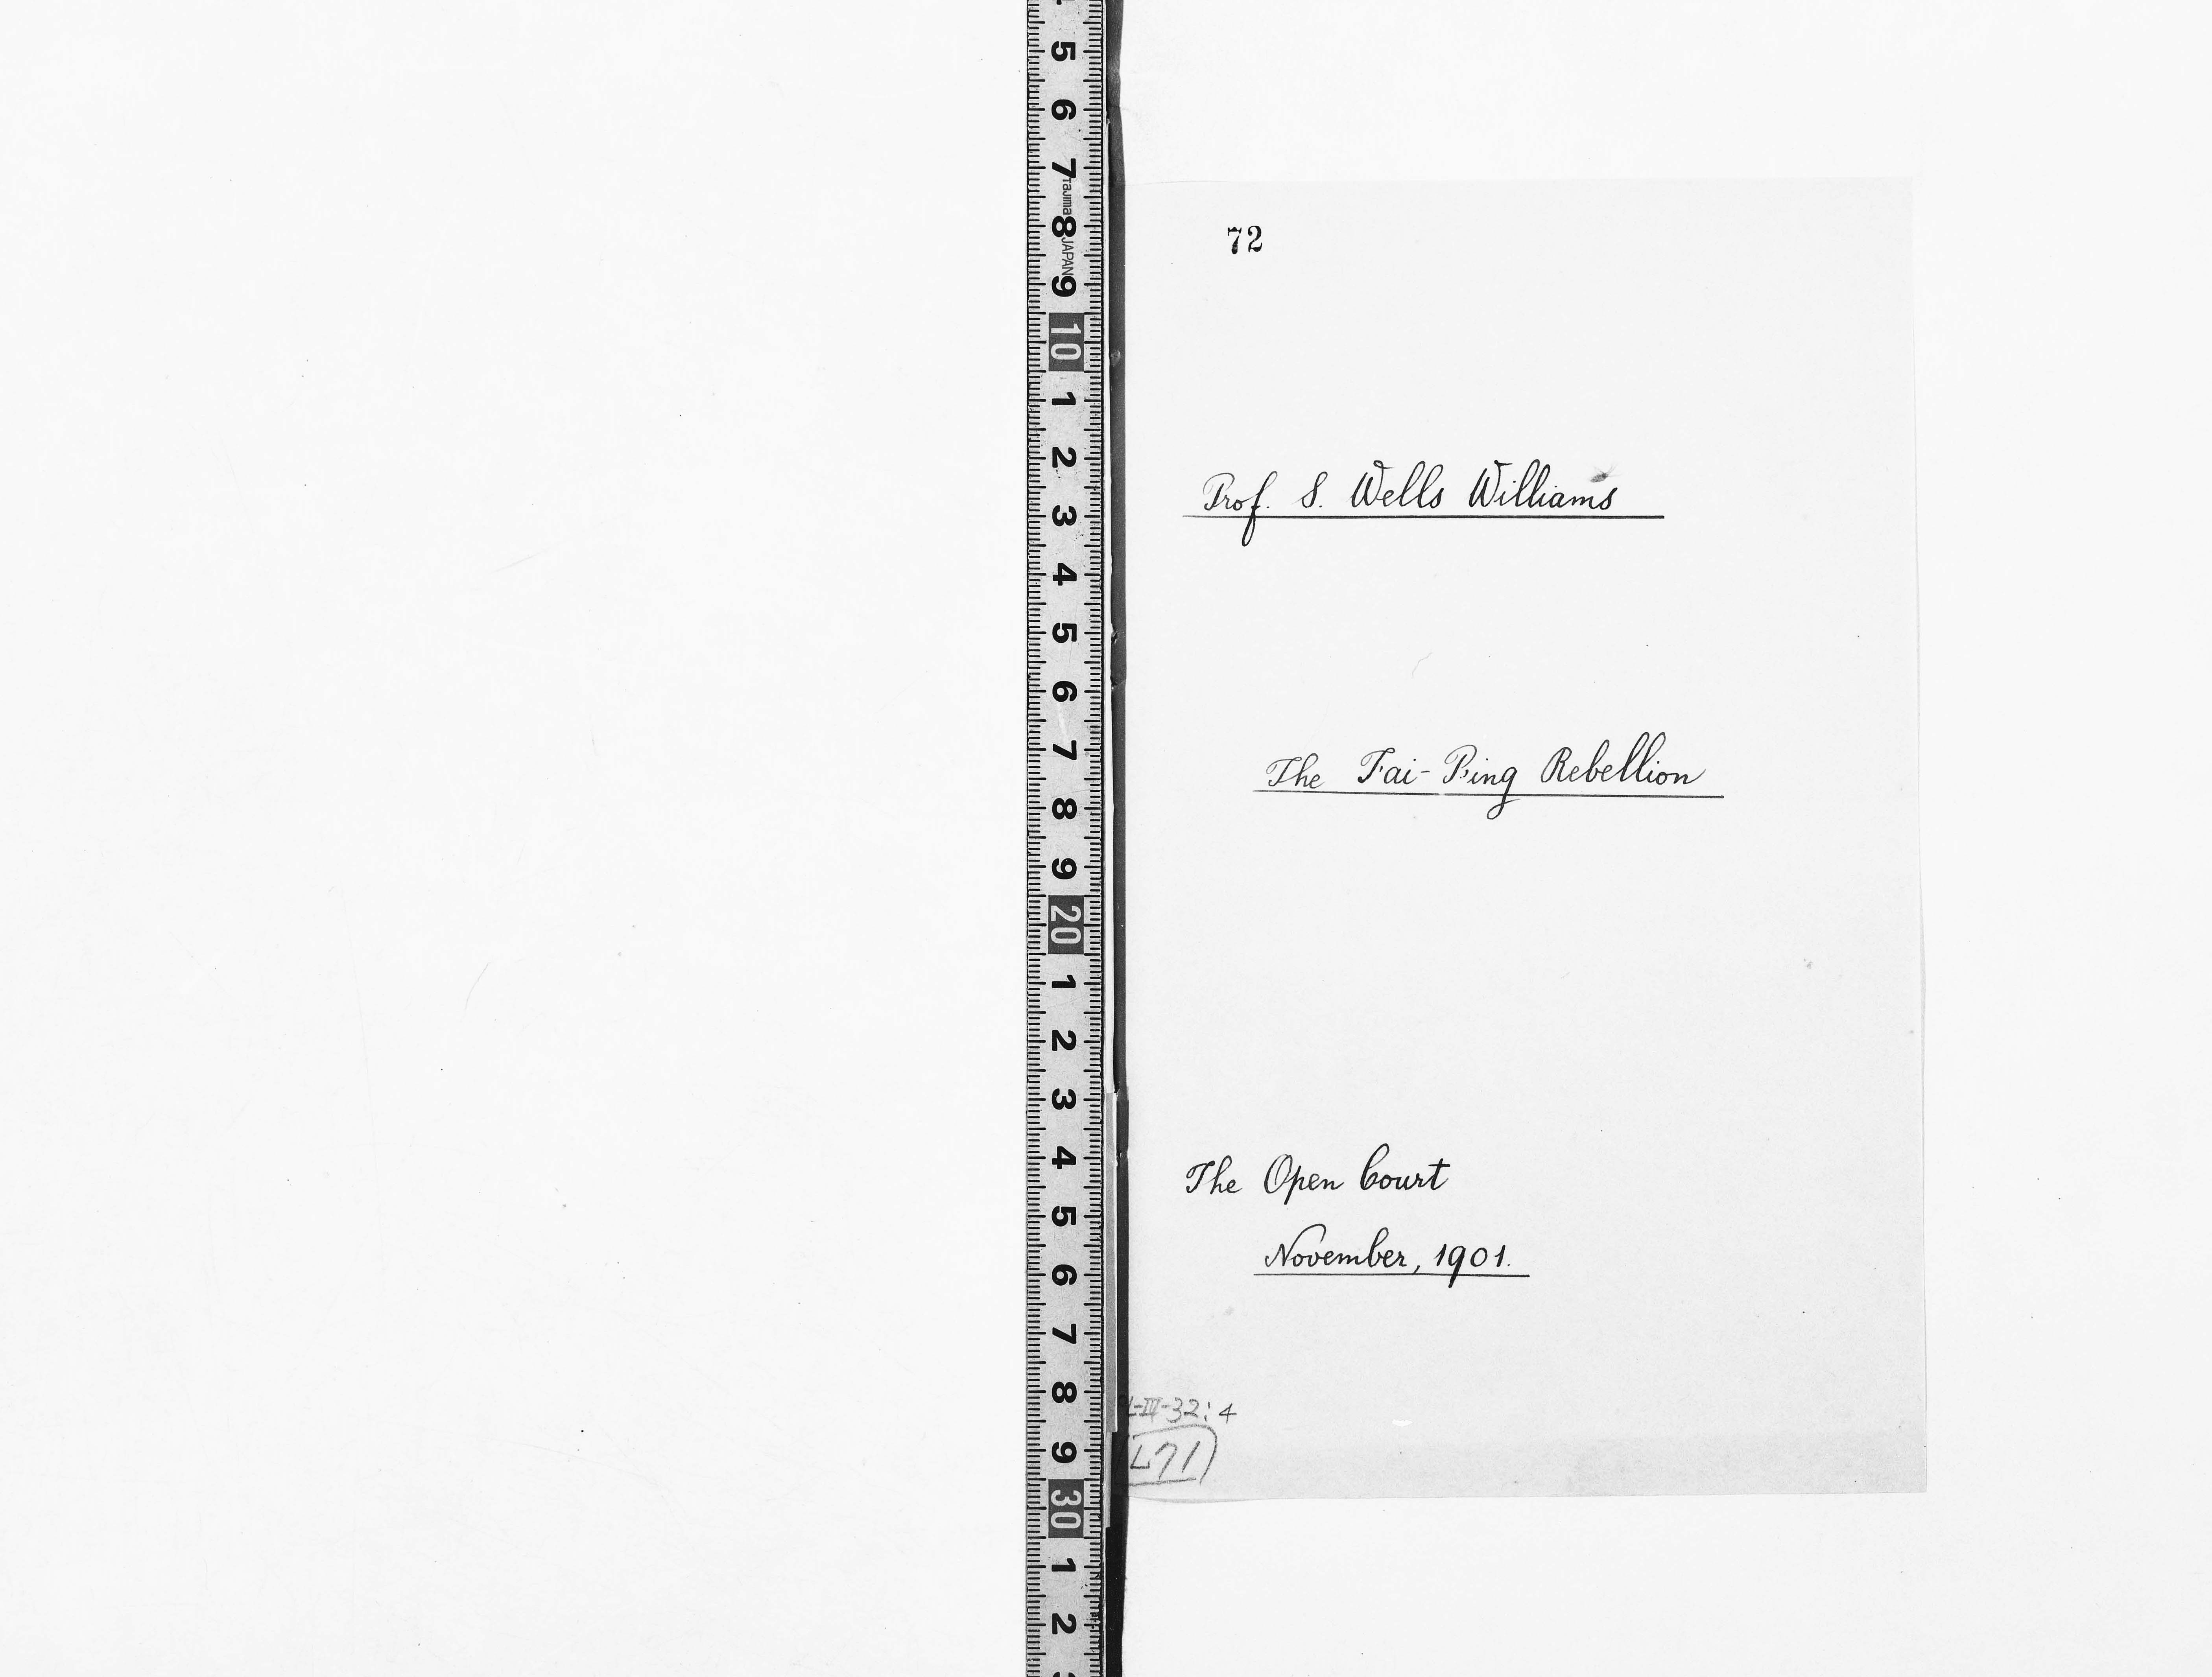 5
6
7
Tajima
8
JAPAN
9
10
1
2
3
4
5
6
7
8
9
20
1
2
3
4
5
6
7
8
9
30
1
2
72
Prof. S. Wells Williams
The Tai-Ping Rebellion
The Open Court
November, 1901.
-III-32:4
L71